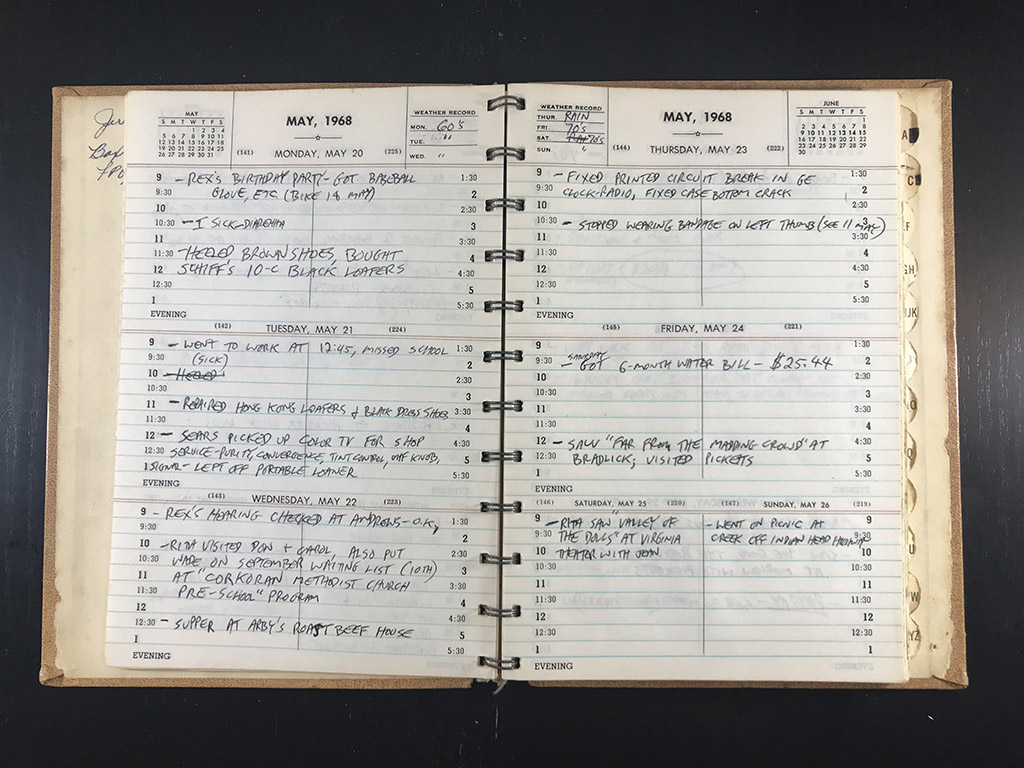 MAY
S M T W T F S
1 2 3 4
5 6 7 8 9 10 11
12 13 14 15 16 17 18
19 20 21 22 23 24 25
26 27 28 29 30 31
MAY, 1968
WEATHER RECORD
MON. 60's
TUE. "
WED. "
(141) MONDAY, MAY 20 (225)
9 – REX'S BIRTHDAY PARTY – GOT BASEBALL 1:30
9:30 GLOVE, ETC (BIKE 18 MAY) 2
10 2:30
10:30 – I SICK – DIAREHHA 3
11 3:30
11:30 – HEELED BROWN SHOES, BOUGHT 4
12 SCHIFF'S 10-C BLACK LOAFERS 4:30
12:30 5
1 5:30
EVENING
(142) TUESDAY, MAY 21 (224)
9 – WENT TO WORK AT 12:45, MISSED SCHOOL 1:30
9:30 (SICK) 2
10 – HEELED 2:30
10:30 3
11 – REPAIRED HONG KONG LOAFERS & BLACK DRESS SHOES 3:30
11:30 4
12 – SEARS PICKED UP COLOR TV FOR SHOP 4:30
12:30 SERVICE – PURITY, CONVERGENCE, TINT CONTROL, VHF KNOB, 5
1 SIGNAL – LEFT OFF PORTABLE LOANER 5:30
EVENING
(143) WEDNESDAY, MAY 22 (223)
9 – REX'S HEARING CHECKED AT ANDREWS – O.K. 1:30
9:30 2
10 – RITA VISITED DON & CAROL, ALSO PUT 2:30
10:30 WADE ON SEPTEMBER WAITING LIST (10TH) 3
11 AT "CORKORAN METHODIST CHURCH 3:30
11:30 PRE-SCHOOL" PROGRAM 4
12 4:30
12:30 – SUPPER AT ARBY'S ROAST BEEF HOUSE 5
1 5:30
EVENING
WEATHER RECORD
THUR. RAIN
FRI. 70s
SAT. 70's
SUN. "
MAY, 1968
JUNE
S M T W T F S
1
2 3 4 5 6 7 8
9 10 11 12 13 14 15
16 17 18 19 20 21 22
23 24 25 26 27 28 29
30
(144) THURSDAY, MAY 23 (222)
9 – FIXED PRINTED CIRCUIT BREAK IN GE 1:30
9:30 CLOCK-RADIO, FIXED CASE BOTTOM CRACK 2
10 2:30
10:30 – STOPPED WEARING BANDAGE ON LEFT THUMB (SEE 11 MAY) 3
11 3:30
11:30 4
12 4:30
12:30 5
1 5:30
EVENING
(145) FRIDAY, MAY 24 (221)
9 1:30
SAMEDAY
9:30 – GOT 6-MONTH WATER BILL – $25.44 2
10 2:30
10:30 3
11 3:30
11:30 4
12 – SAW "FAR FROM THE MADDING CROWD" AT 4:30
12:30 BRADLICK; VISITED PICKETTS 5
1 5:30
EVENING
(146) SATURDAY, MAY 25 (220) (147) SUNDAY, MAY 26 (219)
9 – RITA SAW "VALLEY OF – WENT ON PICNIC AT 9
9:30 THE DOLLS" AT VIRGINIA CREEK OFF INDIAN HEAD HIGHWAY 9:30
10 THEATER WITH JEAN 10
10:30 10:30
11 11
11:30 11:30
12 12
12:30 12:30
1 1
EVENING
A
C
EF
GH
IJK
O
U
W
YZ